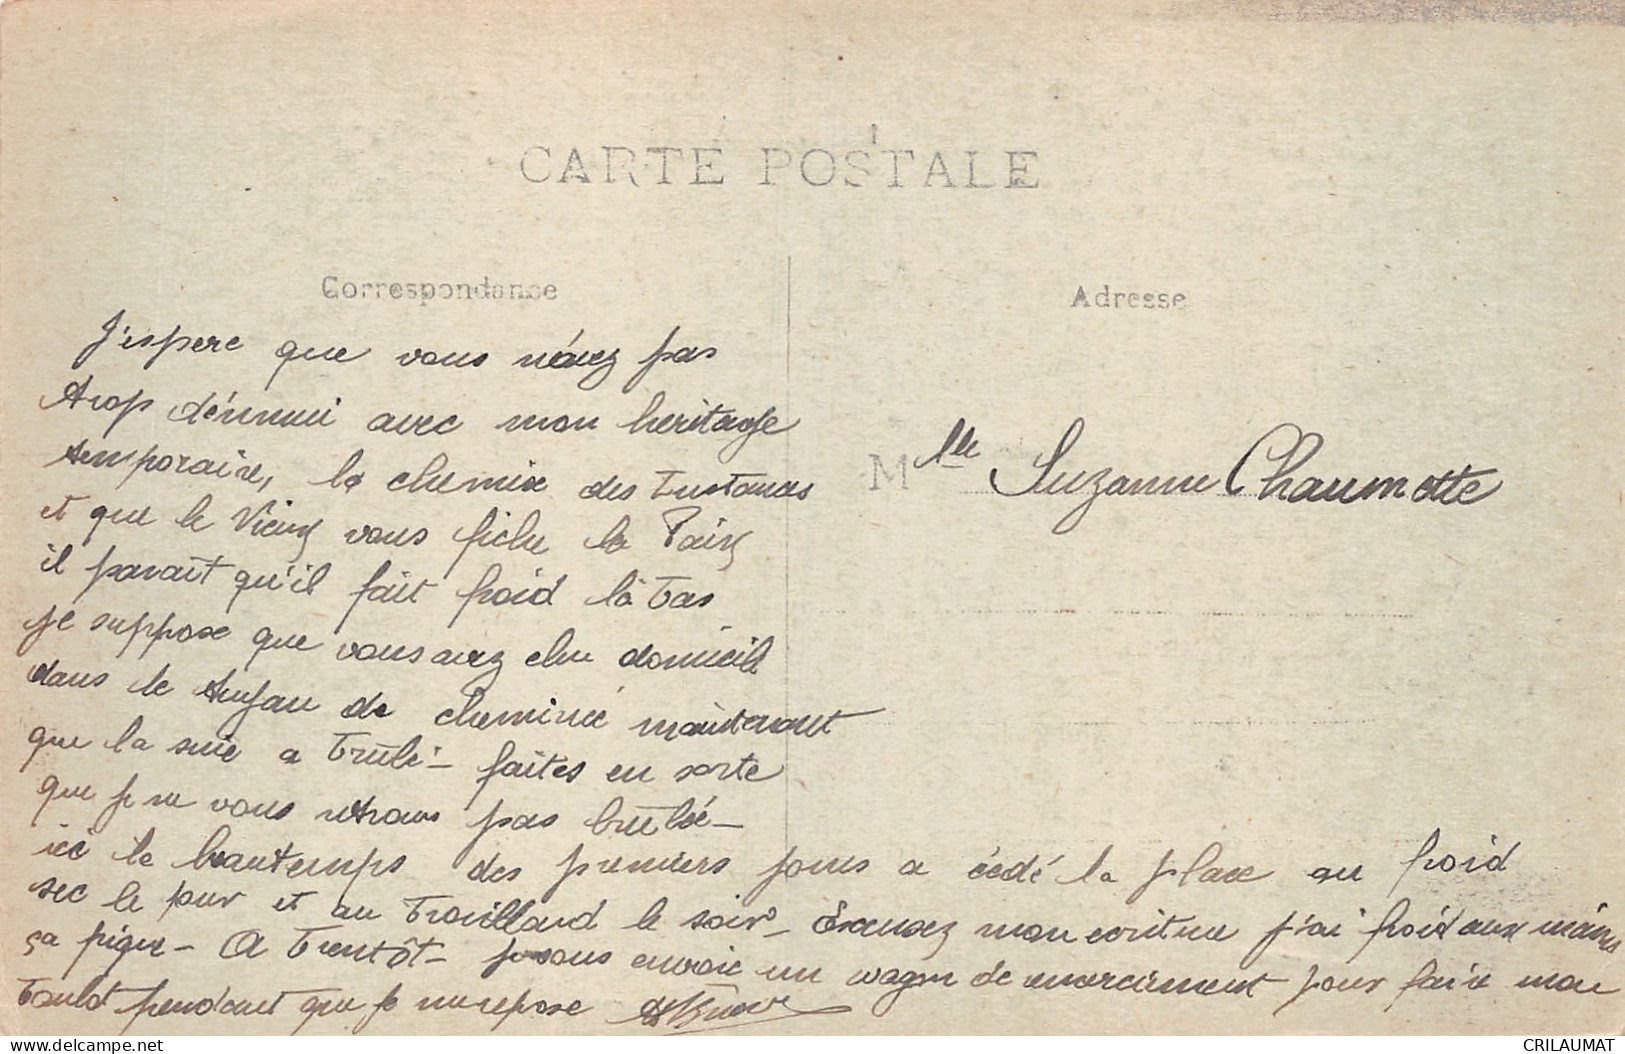 CARTE POSTALE
Correspondance
Adresse
J'espere que vous n'avez pas
trop d'ennui avec mon heritage
temporaire, la chemise des
et que le Vieux vous fiche la Paix
il parait qu'il fait froid là bas
je suppose que vous avez elu domicile
dans le tuyau de cheminée maintenant
que la suie a brulé - faites en sorte
que je ne vous retrouve pas brulée -
Mlle Suzanne Chaumette
ici le beau temps des premiers jours a cédé la place au froid
sec le jour et au brouillard le soir - Excusez mon ecriture j'ai froid aux mains
ça pique - A bientôt - je vous envoie un wagon de remerciement pour faire mon
boulot pendant que je me repose
CRILAUMAT